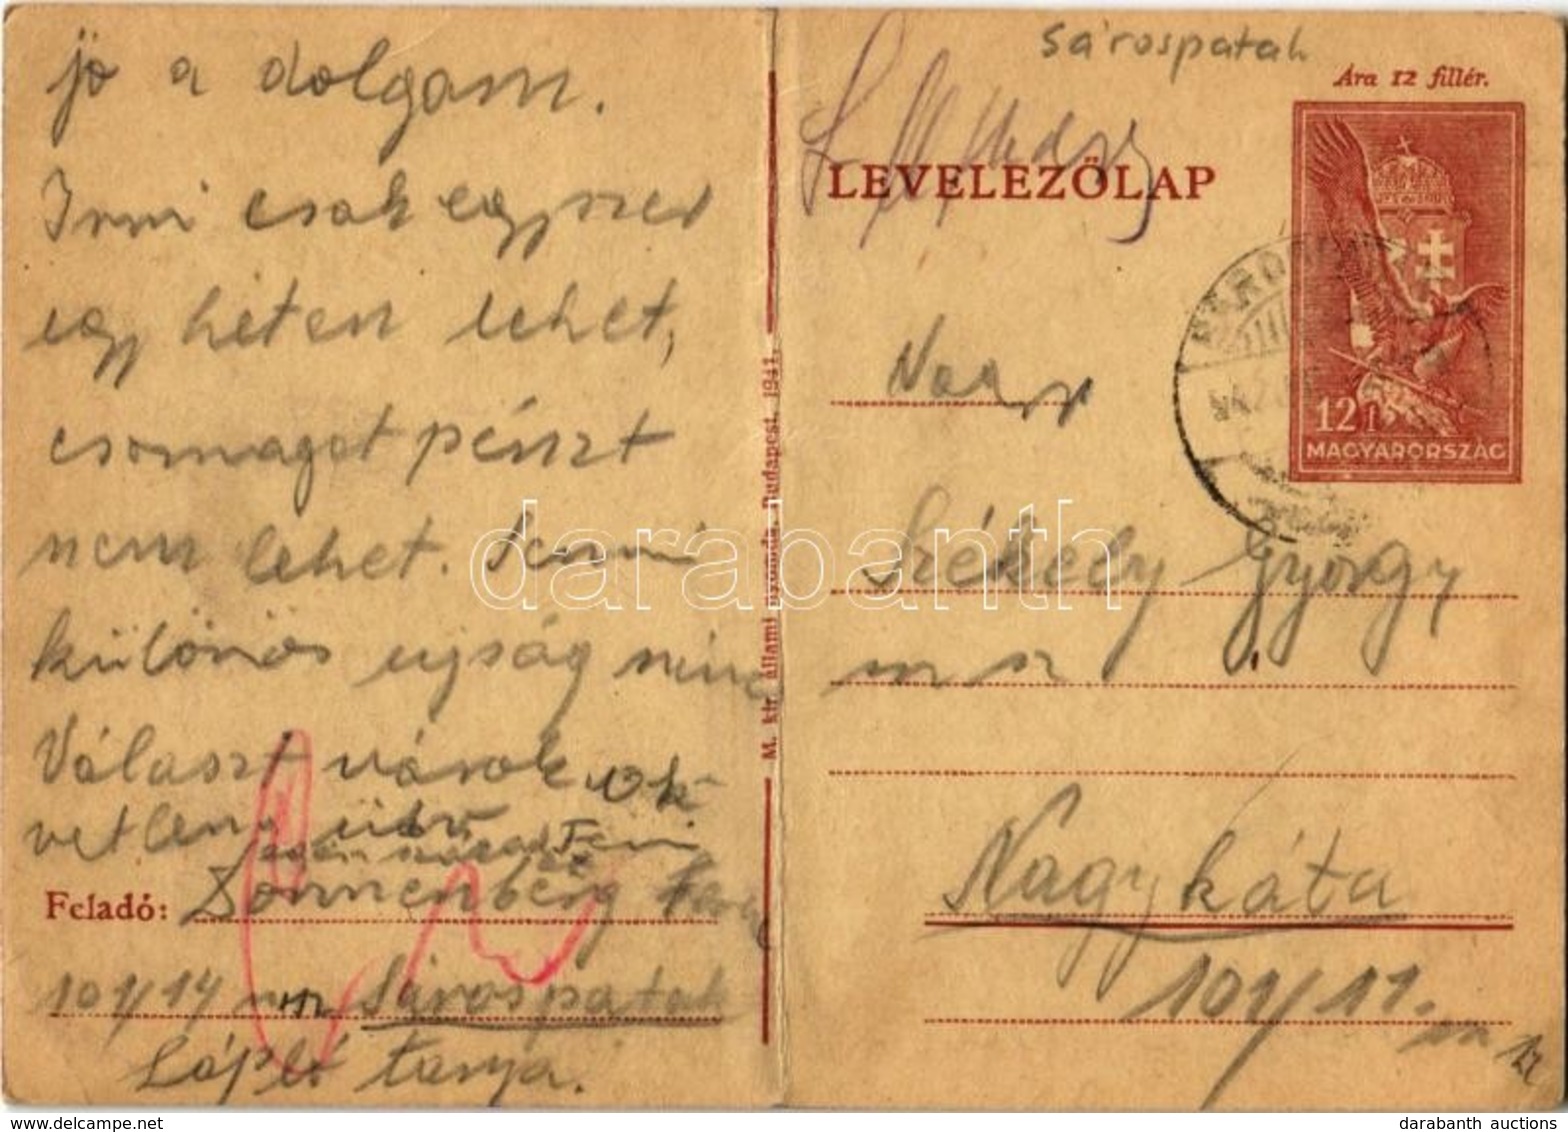 jó a dolgom.
Irni csak egyszer
egy héten lehet,
csomagot pénzt
nem lehet. Semi
különös ujság nincs
Választ várok
vetlenül üdv
Feladó: Sonnenberg
101/14 msz Sárospatak
Lápló tanya.
M. kir. állami nyomda, Budapest. 1941.
Sárospatak
Ára 12 fillér.
LEVELEZŐLAP
12 f
MAGYARORSZÁG
Nagys
Székely György
msz
Nagykáta
101/11.
msz
darabanth
darabanth auctions